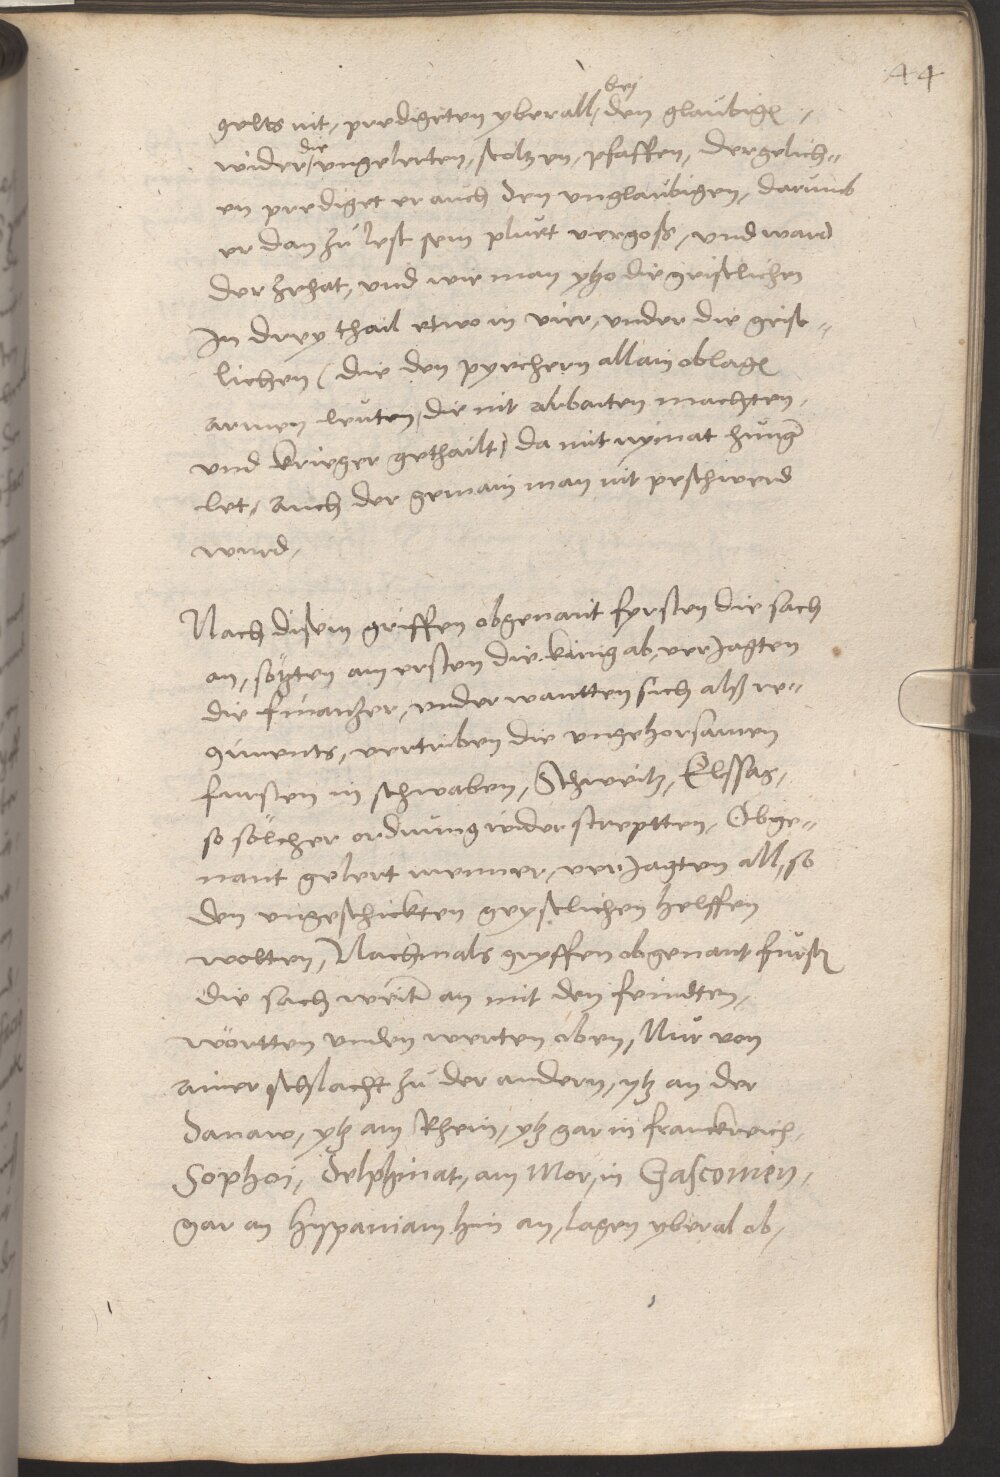 44
gelts nit, predigeten yberall, bey den glaubigen,
wider die ungelerten, stoltzen, pfaffen, dergelich=
en prediget er auch den unglaubigen, darumb
er dan zu lest sein pluet vergoß, und ward
der zehat, und wie man ytzo die geistlichen
In drey thail etwo in vier, under die geist=
lichen (die den pyechern allain oblagen
armen leuten, die nit arbaiten machten,
und krieger gethailt) da mit nyemat hung
let, auch der gemain man nit peschwerd
wurd,
Nach disem griffen obgenant fyrsten die sach
an, sötzten am ersten die king ab, verJagten
die finantzer, underwantten sich alß re=
giments, vertriben die ungehorsamen
fursten in schwaben, Schweitz, Elssas,
so sölcher ordnung wider streptten, Obge=
nant gelert menner, verJagten all, so
den ungeschickten geystlichen helffen
wolten, Nachmals gryffen obgenant fursten
die sach weiter an mit den feindten,
wortten unden werten oben, Nur von
ainer schlacht zu der andern, ytz an der
Danaw, ytz am Rhein, ytz gar in franckreich,
Sophoi, Delphinat, am Mor, in Gasconien,
gar an Hyspaniam hin an, lagen yberal ob,